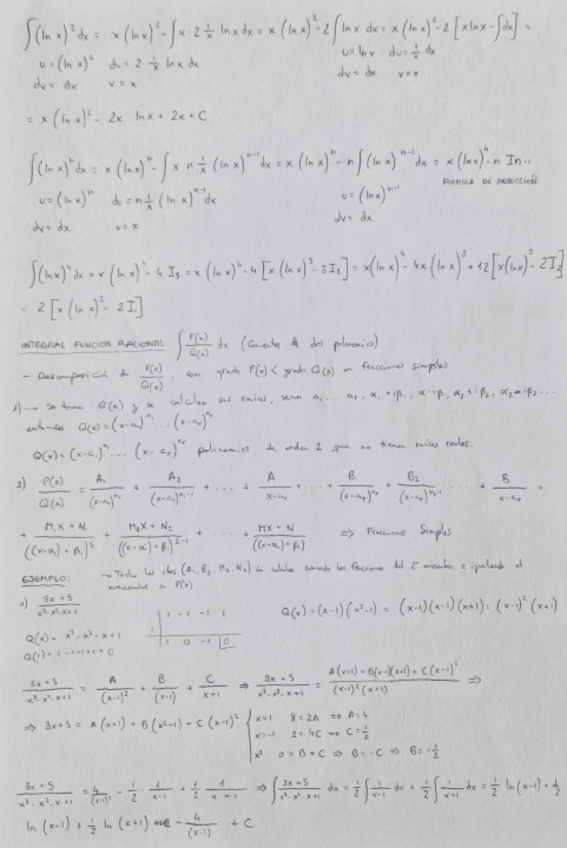 ∫(ln x)² dx = x (ln x)² - ∫x·2 1/x ln x dx = x (ln x)² - 2∫ln x dx = x (ln x)² - 2 [x ln x - ∫dx] =
u = (ln x)² du = 2·1/x ln x dx u = ln x du = 1/x dx
dv = dx v = x dv = dx v = x
= x (ln x)² - 2x ln x + 2x + C
∫(ln x)ⁿ dx = x (ln x)ⁿ - ∫x n 1/x (ln x)ⁿ⁻¹ dx = x (ln x)ⁿ - n∫(ln x)ⁿ⁻¹ dx = x (ln x)ⁿ - n Iₙ₋₁
FÓRMULA DE REDUCCIÓN
u = (ln x)ⁿ du = n 1/x (ln x)ⁿ⁻¹ dx u = (ln x)ⁿ⁻¹
dv = dx v = x dv = dx
∫(ln x)⁴ dx = x (ln x)⁴ - 4 I₃ = x (ln x)⁴ - 4 [x (ln x)³ - 3I₂] = x (ln x)⁴ - 4x (ln x)³ + 12 [x (ln x)² - 2I₂]
- 2 [x (ln x)² - 2I₁]
INTEGRAL FUNCION RACIONAL ∫P(x)/Q(x) dx (Cociente de dos polinomios)
- Descomposición de P(x)/Q(x), con grado P(x) < grado Q(x) en fracciones simples
1) → Se toma Q(x) y se calculan sus raíces, sean a₁ ... aᵣ,
entonces Q(x) = (x-a₁)ⁿ¹ ... (x-aᵣ)ⁿʳ
Q(x) = (x-a₁)ⁿ¹ ... (x-aᵣ)ⁿʳ polinomios de orden 2 que no tienen raíces reales.
2) P(x)/Q(x) = A₁/(x-a₁)ⁿ¹ + A₂/(x-a₁)ⁿ¹⁻¹ + ... + A/(x-a₁) + ... + B₁/(x-aᵣ)ⁿʳ + B₂/(x-aᵣ)ⁿʳ⁻¹ ... + B/(x-aᵣ) +
+ (M₁X + N₁)/((x-α₁) + β₁)ˢ + (M₂X + N₂)/((x-α₁) + β₁)ˢ⁻¹ + ... + (MX + N)/((x-α₁) + β₁) ⇒ Fracciones Simples
→ Todas las ctes (Aᵢ, Bⱼ, Mₖ, Nₖ) se calculan sumando las fracciones del 2º miembro e igualando el
numerador a P(x)
EJEMPLO:
1) (3x + 5)/(x³-x²-x+1)
1 -1 -1 1 Q(x) = (x-1)(x²-1) = (x-1)(x-1)(x+1) = (x-1)²(x+1)
Q(x) = x³-x²-x+1 1
Q(1) = 1-1-1+1 = 0 1 0 -1 0
(3x+5)/(x³-x²-x+1) = A/(x-1)² + B/(x-1) + C/(x+1) ⇒ (3x+5)/(x³-x²-x+1) = (A(x+1) + B(x-1)(x+1) + C(x-1)²)/((x-1)²(x+1)) ⇒
⇒ 3x+5 = A(x+1) + B(x²-1) + C(x-1)² { x=1 8 = 2A ⇒ A = 4
x=-1 2 = 4C ⇒ C = 1/2
x² 0 = B + C ⇒ B = -C ⇒ B = -1/2
(3x+5)/(x³-x²-x+1) = 4/(x-1)² - 1/2 1/(x-1) + 1/2 1/(x+1) ⇒ ∫(3x+5)/(x³-x²-x+1) dx = 1/2 ∫1/(x-1) dx + 1/2 ∫1/(x+1) dx = 1/2 ln (x-1) + 1/2
ln (x-1) + 1/2 ln (x+1) - 4/(x-1) + C